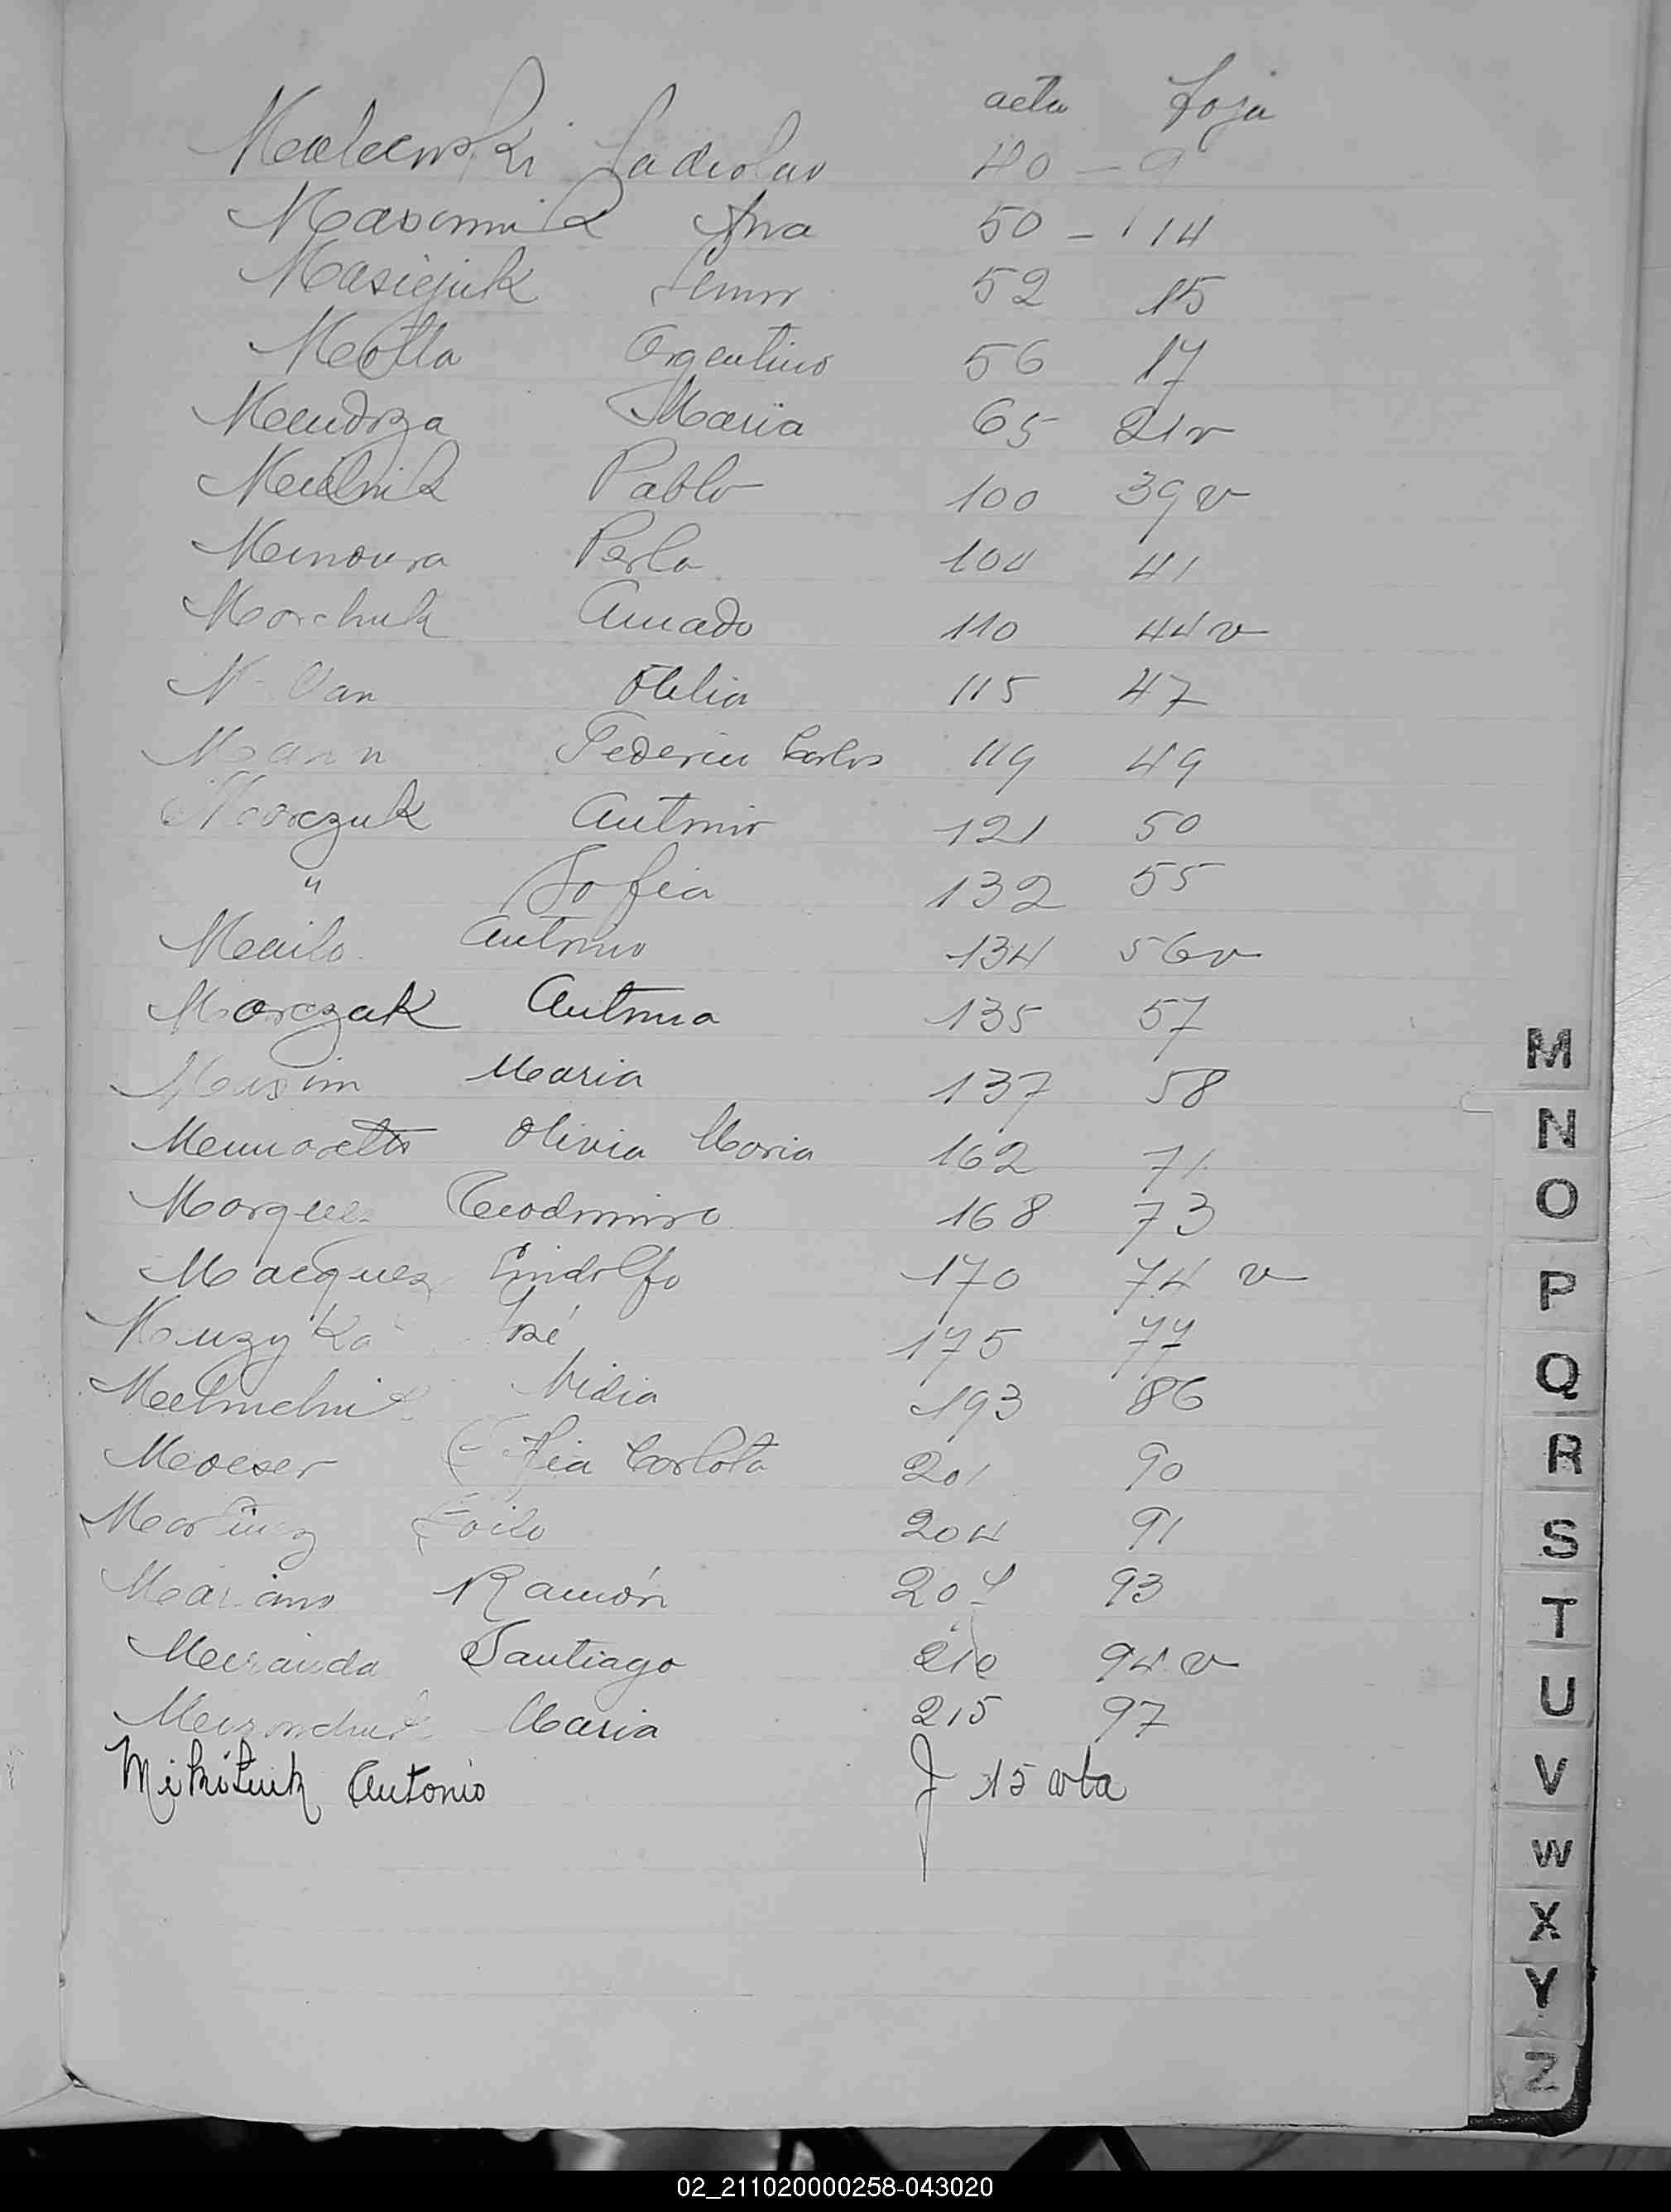 acta foja
Malewski Ladislao 40 - 9
Ana 50 - 14
Masiejuk 52 15
Motta Argentino 56 17
Mendoza Maria 65 21v
Melnik Pablo 100 39v
Perla 104 41
Marchuk Amado 110 44v
115 47
Mann Federico Carlos 119 49
Marczuk Antonio 121 50
" Sofia 132 55
Antonio 134 56v
Marczak Antonia 135 57
Maria 137 58
Olivia Maria 162 71
Marquez Teodomiro 168 73
Marquez Lindolfo 170 74 v
Muzyka José 175 77
Nidia 193 86
Moeser Carlota 201 90
Martinez Zoilo 204 91
Mariano Ramón 93
Miranda Santiago 210 94 v
Maria 215 97
Mikituk Antonio f 15 vta
M
N
O
P
Q
R
S
T
U
V
W
X
Y
Z
02_211020000258-043020